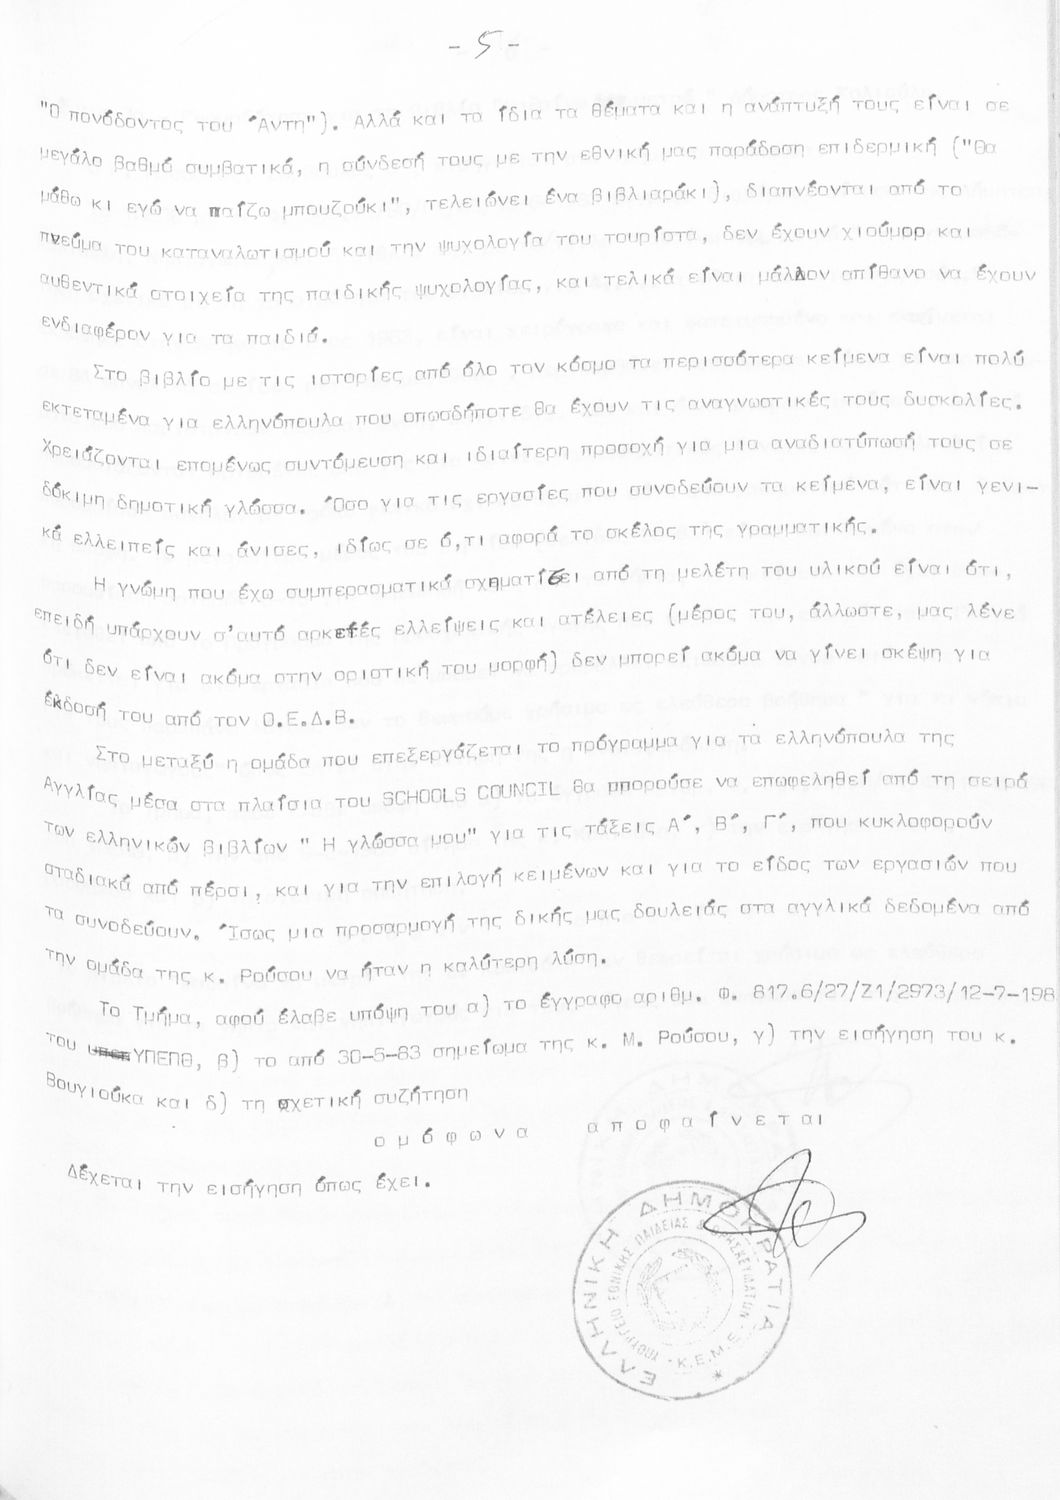 - 5 -
"Ο πονόδοντος του Άντη"). Αλλά και τα ίδια τα θέματα και η ανάπτυξή τους είναι σε
μεγάλο βαθμό συμβατικά, η σύνδεσή τους με την εθνική μας παράδοση επιδερμική ("Θα
μάθω κι εγώ να παίζω μπουζούκι", τελειώνει ένα βιβλιαράκι), διαπνέονται από το
πνεύμα του καταναλωτισμού και την ψυχολογία του τουρίστα, δεν έχουν χιούμορ και
αυθεντικά στοιχεία της παιδικής ψυχολογίας, και τελικά είναι μάλλον απίθανο να έχουν
ενδιαφέρον για τα παιδιά.
Στο βιβλίο με τις ιστορίες από όλο τον κόσμο τα περισσότερα κείμενα είναι πολύ
εκτεταμένα για ελληνόπουλα που οπωσδήποτε θα έχουν τις αναγνωστικές τους δυσκολίες.
Χρειάζονται επομένως συντόμευση και ιδιαίτερη προσοχή για μια αναδιατύπωσή τους σε
δόκιμη δημοτική γλώσσα. Όσο για τις εργασίες που συνοδεύουν τα κείμενα, είναι γενι-
κά ελλειπείς και άνισες, ιδίως σε ό,τι αφορά το σκέλος της γραμματικής.
Η γνώμη που έχω συμπερασματικά σχηματίσει από τη μελέτη του υλικού είναι ότι,
επειδή υπάρχουν σ'αυτό αρκετές ελλείψεις και ατέλειες (μέρος του, άλλωστε, μας λένε
ότι δεν είναι ακόμα στην οριστική του μορφή) δεν μπορεί ακόμα να γίνει σκέψη για
έκδοσή του από τον Ο.Ε.Δ.Β.
Στο μεταξύ η ομάδα που επεξεργάζεται το πρόγραμμα για τα ελληνόπουλα της
Αγγλίας μέσα στα πλαίσια του SCHOOLS COUNCIL θα μπορούσε να επωφεληθεί από τη σειρά
των ελληνικών βιβλίων " Η γλώσσα μου" για τις τάξεις Α΄, Β΄, Γ΄, που κυκλοφορούν
σταδιακά από πέρσι, και για την επιλογή κειμένων και για το είδος των εργασιών που
τα συνοδεύουν. Ίσως μια προσαρμογή της δικής μας δουλειάς στα αγγλικά δεδομένα από
την ομάδα της κ. Ρούσου να ήταν η καλύτερη λύση.
Το Τμήμα, αφού έλαβε υπόψη του α) το έγγραφο αριθμ. Φ. 817.6/27/Ζ1/2973/12-7-198
του ΥΠΕΠΘ, β) το από 30-5-83 σημείωμα της κ. Μ. Ρούσου, γ) την εισήγηση του κ.
Βουγιούκα και δ) τη σχετική συζήτηση
ο μ ό φ ω ν α α π ο φ α ί ν ε τ α ι
Δέχεται την εισήγηση όπως έχει.
ΕΛΛΗΝΙΚΗ ΔΗΜΟΚΡΑΤΙΑ
ΥΠΟΥΡΓΕΙΟ ΕΘΝΙΚΗΣ ΠΑΙΔΕΙΑΣ & ΘΡΗΣΚΕΥΜΑΤΩΝ
Κ.Ε.Μ.Ε.